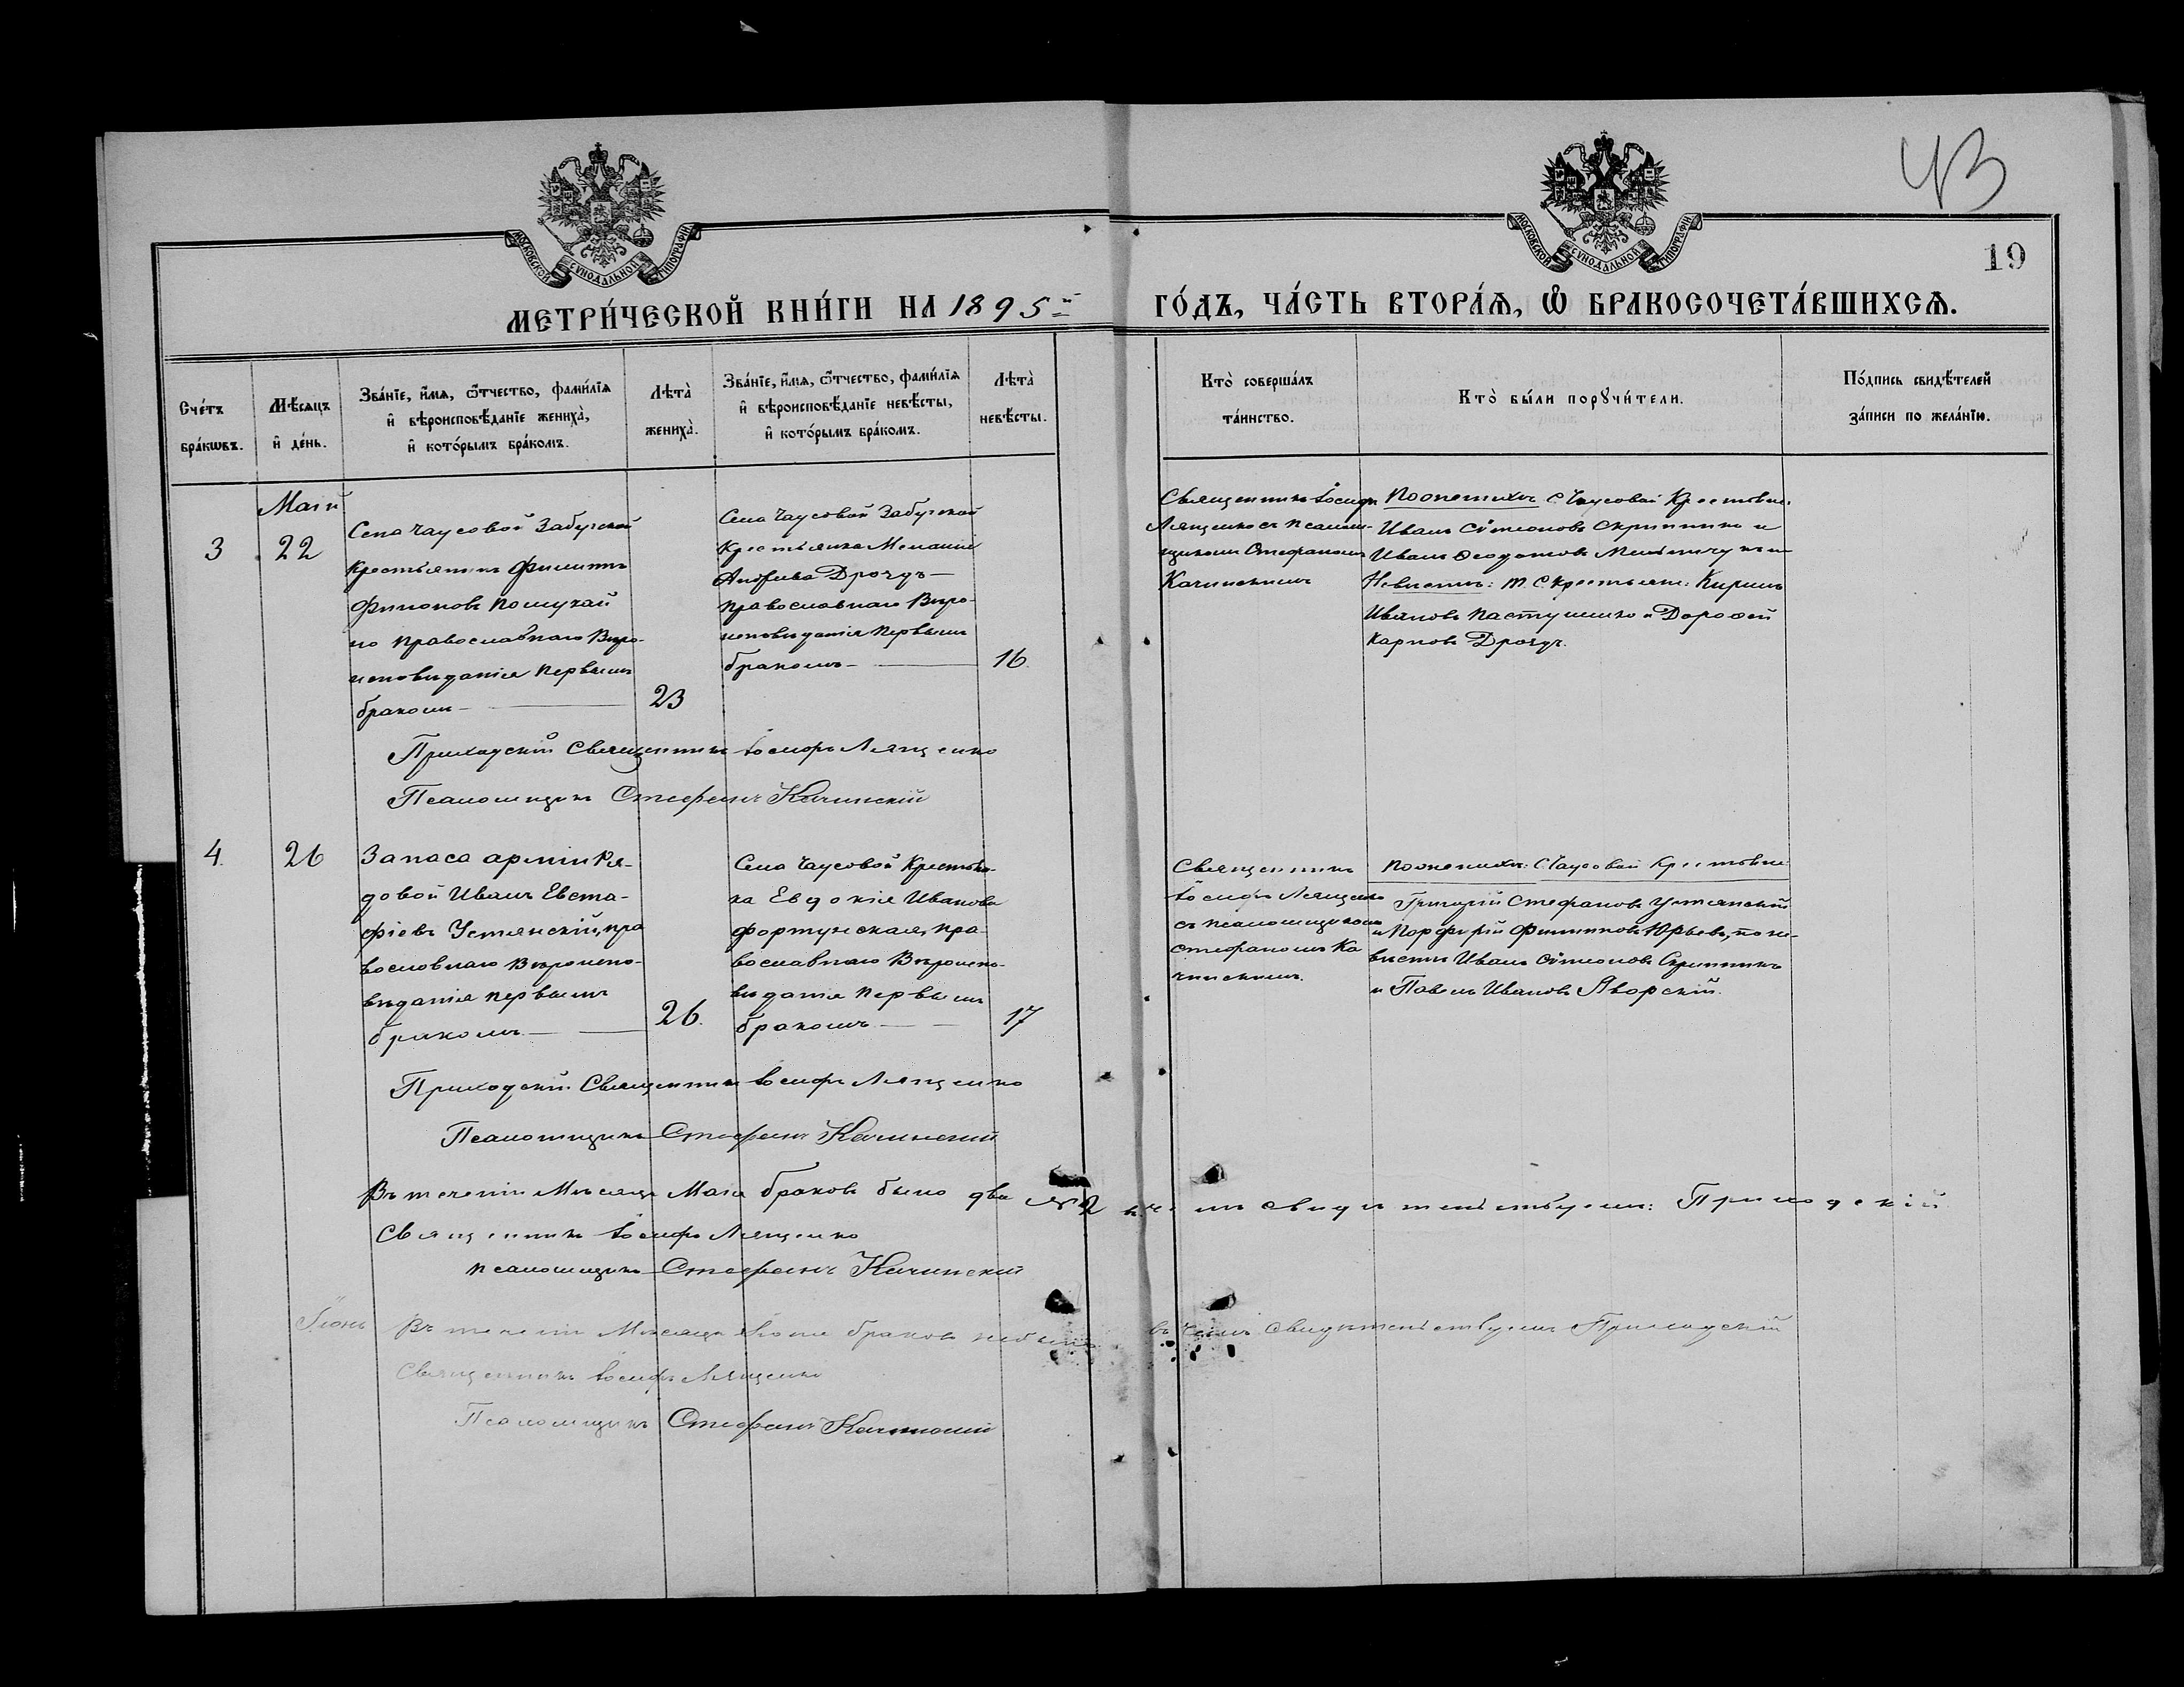 43
19
МОСКОВСКОЙ СУНОДАЛЬНОЙ ТИПОГРАФІИ
МОСКОВСКОЙ СУНОДАЛЬНОЙ ТИПОГРАФІИ
МЕТРИ́ЧЕСКОЙ КНИ́ГИ НА 1895й ГО́ДЪ, ЧА́СТЬ ВТОРА́Ѧ, Ѽ БРАКОСОЧЕТА́ВШИХСѦ.
Сче́тъ бра́кѡвъ.
Мѣ́сяцъ и҆ де́нь.
Зва́нїе, и҆́мѧ, ѻ҆́тчество, фами́лїѧ
и҆ вѣроисповѣ́данїе жениха̀,
и҆ кото́рымъ бра́комъ.
Лѣта̀ жениха̀.
Зва́нїе, и҆́мѧ, ѻ҆́тчество, фами́лїѧ
и҆ вѣроисповѣ́данїе невѣ́сты,
и҆ кото́рымъ бра́комъ.
Лѣта̀ невѣ́сты.
Кто̀ соверша́лъ
та́инство.
Кто̀ бы́ли порꙋчи́тели.
По́дпись свидѣ́телей
за́писи по жела́нїю.
Май
3
22
Села Чаусовой Забугской
Крестьянинъ Филиппъ
Филиповъ
но Православнаго Вѣро-
исповѣданія первымъ
бракомъ
23
Села Чаусовой Забугской
Крестьянка Меланія
Андреева Дроздъ
православнаго Вѣро-
исповѣданія первымъ
бракомъ
16
Священникъ Іосифъ
Лященко съ псалом-
щикомъ Стефаномъ
Качинскимъ
По женихѣ С. Чаусовой Крестьяне:
Иванъ Сѵмеоновъ Скрипникъ и
Иванъ Ѳеодотовъ
Невѣстѣ: т. с. крестьяне: Кирилъ
Ивановъ Пастушенко и Дороѳей
Карповъ Дроздъ.
Приходскій Священникъ Іосифъ Лященко
Псаломщикъ Стефанъ Качинскій
4
26
Запаса арміи Ря-
довой Иванъ Евста-
фіевъ Устянскій, пра
вославнаго Вѣроиспо-
вѣданія первымъ
бракомъ
26.
Села Чаусовой Крестьян-
ка Евдокія Иванова
Фортунская, пра-
вославнаго Вѣроиспо-
вѣданія первымъ
бракомъ
17
Священникъ
Іосифъ Лященко
съ псаломщикомъ
Стефаномъ Ка
чинскимъ.
По женихѣ: С. Чаусовой Крестьяне
Григорій Стефановъ Устянскій
и Порфирій Филиповъ Юрьевъ, по не-
вѣстѣ Иванъ Сѵмеоновъ Скрипникъ
и Павелъ Ивановъ Яворскій.
Приходскій Священникъ Іосифъ Лященко
Псаломщикъ Стефанъ Качинскій
Въ теченіи Мѣсяца Мая браковъ было два 2 въ чемъ свидѣтельствуемъ: Приходскій
Священникъ Іосифъ Лященко
псаломщикъ Стефанъ Качинскій
Іюнь
Въ теченіи Мѣсяца Іюня браковъ небыло въ чемъ свидѣтельствуемъ Приходскій
Священникъ Іосифъ Лященко
Псаломщикъ Стефанъ Качинскій